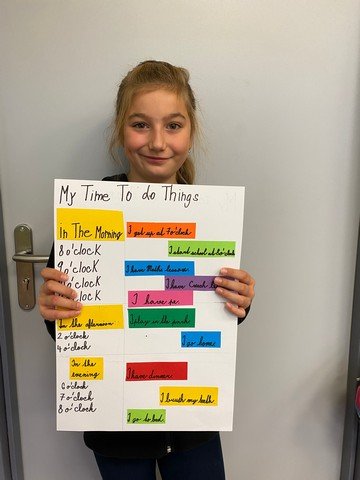 My Time To do Things
In The Morning
I get up at 7 o'clock.
8 o'clock
I start school at 8 o'clock
9 o'clock
I have Maths lessons.
o'clock
I have Czech
o'clock
I have
In the afternoon
I play in the park
2 o'clock
I go home.
4 o'clock
In the evening
I have dinner.
6 o'clock
7 o'clock
I brush my teeth
8 o'clock
I go to bed.